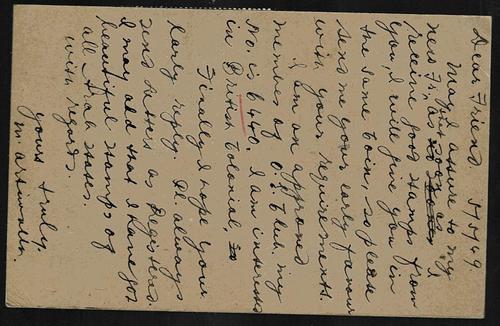 Dear Friend. 5/5/49.
May I assure to my
new Fr. as soon as I
receive good stamps from
you, I will give you in
the same coin, so please
send me your early favour
with your requirements.
I am an approved
member of O.S. Club. my
No. is 6440. I am interest
in British Colonial.
Finally I hope you
early reply. Pl. always
send letters as Registered.
I may add that I have got
beautiful stamps of
all Arab states.
with regards.
yours truly,